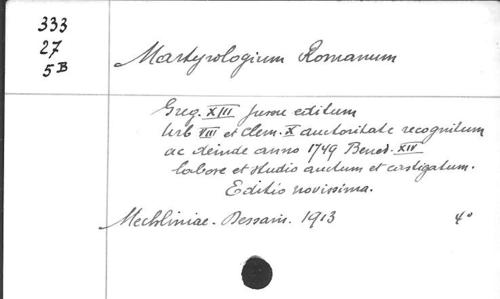 333
27
5B
Martyrologium Romanum
Greg. XIII jussu editum
Urb VIII et Clem. X auctoritate recognitum
ac deinde anno 1749 Bened. XIV
labore et studio auctum et castigatum.
Editio novissima.
Mechliniae. Dessain. 1913 4°